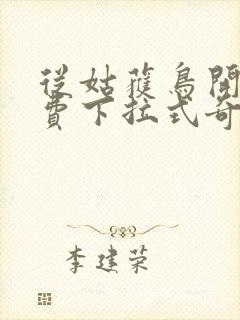 從姑獲鳥開
費下拉式奇
李建荣